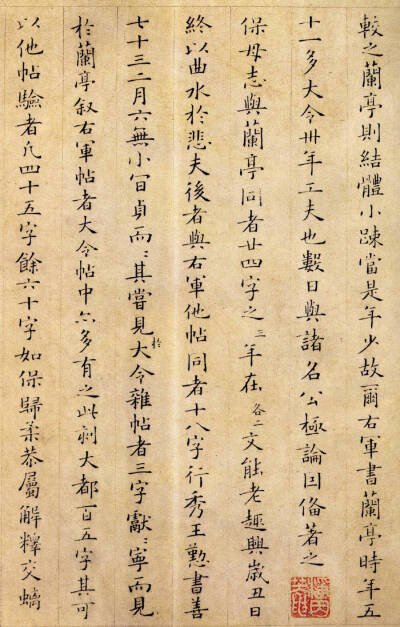 較之蘭亭則結體小踈當是年少故爾右軍書蘭亭時年五
十一多大令卅年工夫也數日與諸名公極論因俻著之
保母志與蘭亭同者廿四字之三年在各二文能老趣興嵗丑日
終以曲水於悲夫後者與右軍他帖同者十八字行秀王懃書善
七十三二月六無小㝐貞而〻其嘗見於大令雜帖者三字獻〻寧而見
於蘭亭叙右軍帖者大令帖中六多有之此剡大都百五字其可
以他帖驗者凢四十五字餘六十字如保歸柔恭屬解釋交螭